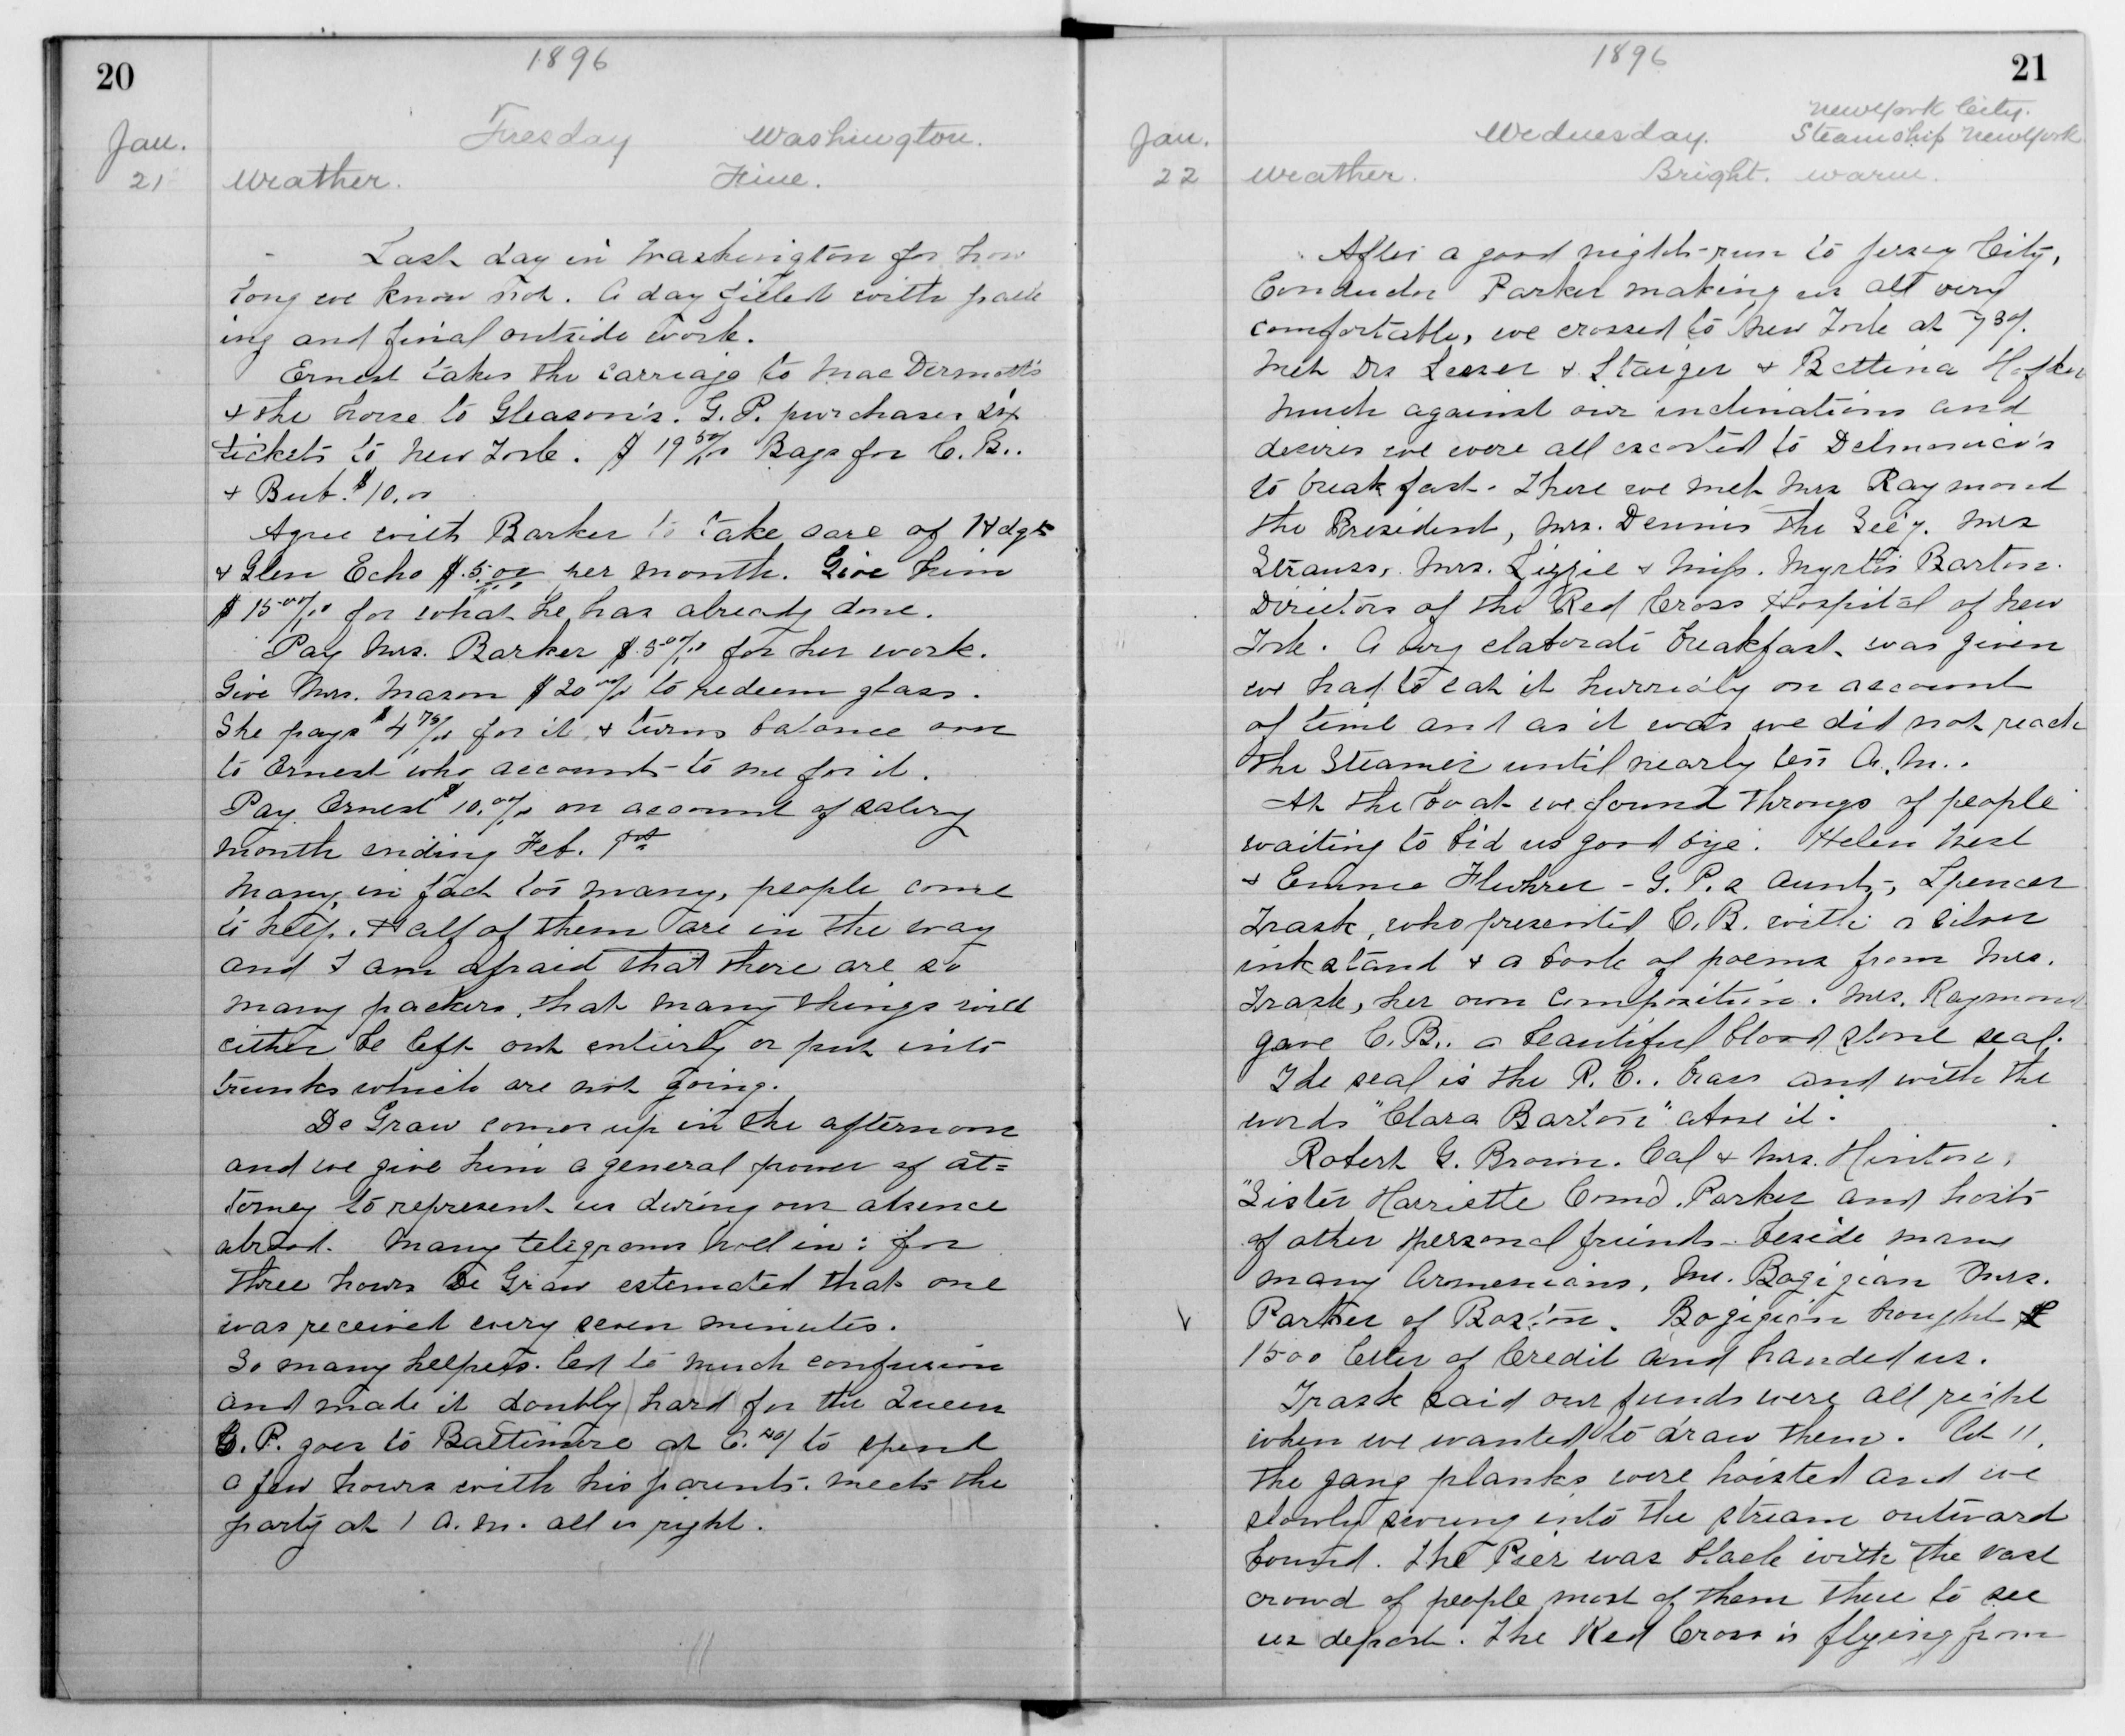 20
1896
Jan.
21
Tuesday Washington.
Weather. Fine.
Last day in Washington for how
long we know not. A day filled with pack
ing and final outside work.
Ernest takes the carriage to MacDermott's
& the horse to Gleason's. G. P. purchases six
tickets to New York. $19 50/00 Bags for C. B..
& Bub. $10.00
Agree with Barker to take care of Hdqts
& Glen Echo $.5.00 per month. Give him
$15 00/00 for what he has already done.
Pay Mrs. Barker $.5 00/00 for her work.
Give Mrs. Mason $20 00/00 to redeem glass.
She pays $4 75/00 for it & turns balance over
to Ernest who accounts to me for it.
Pay Ernest $10.00/00 on account of salery
month ending Feb. 1st
Many, in fact too many, people come
to help. Half of them are in the way
and I am afraid that there are so
many packers, that many things will
either be left out entirely or put into
trunks which are not going.
De Graw comes up in the afternoon
and we give him a general power of at=
torney to represent us during our absence
abroad. Many telegrams roll in: for
three hours De Graw estemated that one
was received every seven minutes.
So many helpers led to much confusion
and made it doubly hard for the Queen
G. P. goes to Baltimore at 6.20/ to spend
a few hours with his parents. meets the
party at 1 A.M. all is right.
21
1896
Jan.
22
New York City.
Wednesday. Steamship New York
Weather. Bright. warm.
After a good nights run to Jersey City,
Conductor Parker making us all very
comfortable, we crossed to New York at 7 30/.
Met Drs Lesser & Staiger & Bettina Hofker
Much against our inclinations and
desires we were all escorted to Delmonico's
to breakfast. There we met Mrs Raymond
the President, Mrs. Dennis the Sec'y. Mrs
Strauss, Mrs. Lizzie & Miss. Myrtis Barton.
Directors of the Red Cross Hospital of New
York. A very elaborate breakfast was given
we had to eat it hurriedly on account
of time and as it was we did not reach
the Steamer until nearly ten A.M..
At the boat we found throngs of people
waiting to bid us good bye. Helen West
& Emma Fluhrer - G. P.s aunts, Spencer
Trask, who presented C. B. with a silver
inkstand & a book of poems from Mrs.
Trask, her own composition. Mrs. Raymond
gave C. B.. a beautiful blood stone seal.
The seal is the R. C.. Cross and with the
words "Clara Barton" above it.
Robert G. Brown. Col & Mrs. Hinton,
"Sister Harriette Comd. Parker and hosts
of other personal friends beside
many Armenians, Mr. Bogigian Mrs.
Parker of Boston. Bogigian bought £
1500 letter of Credit and handed us.
Trask said our funds were all right
when we wanted to draw them. At 11,
the gang planks were hoisted and we
slowly swung into the stream outward
bound. The Pier was black with the vast
crowd of people most of them there to see
us depart. The Red Cross is flying from